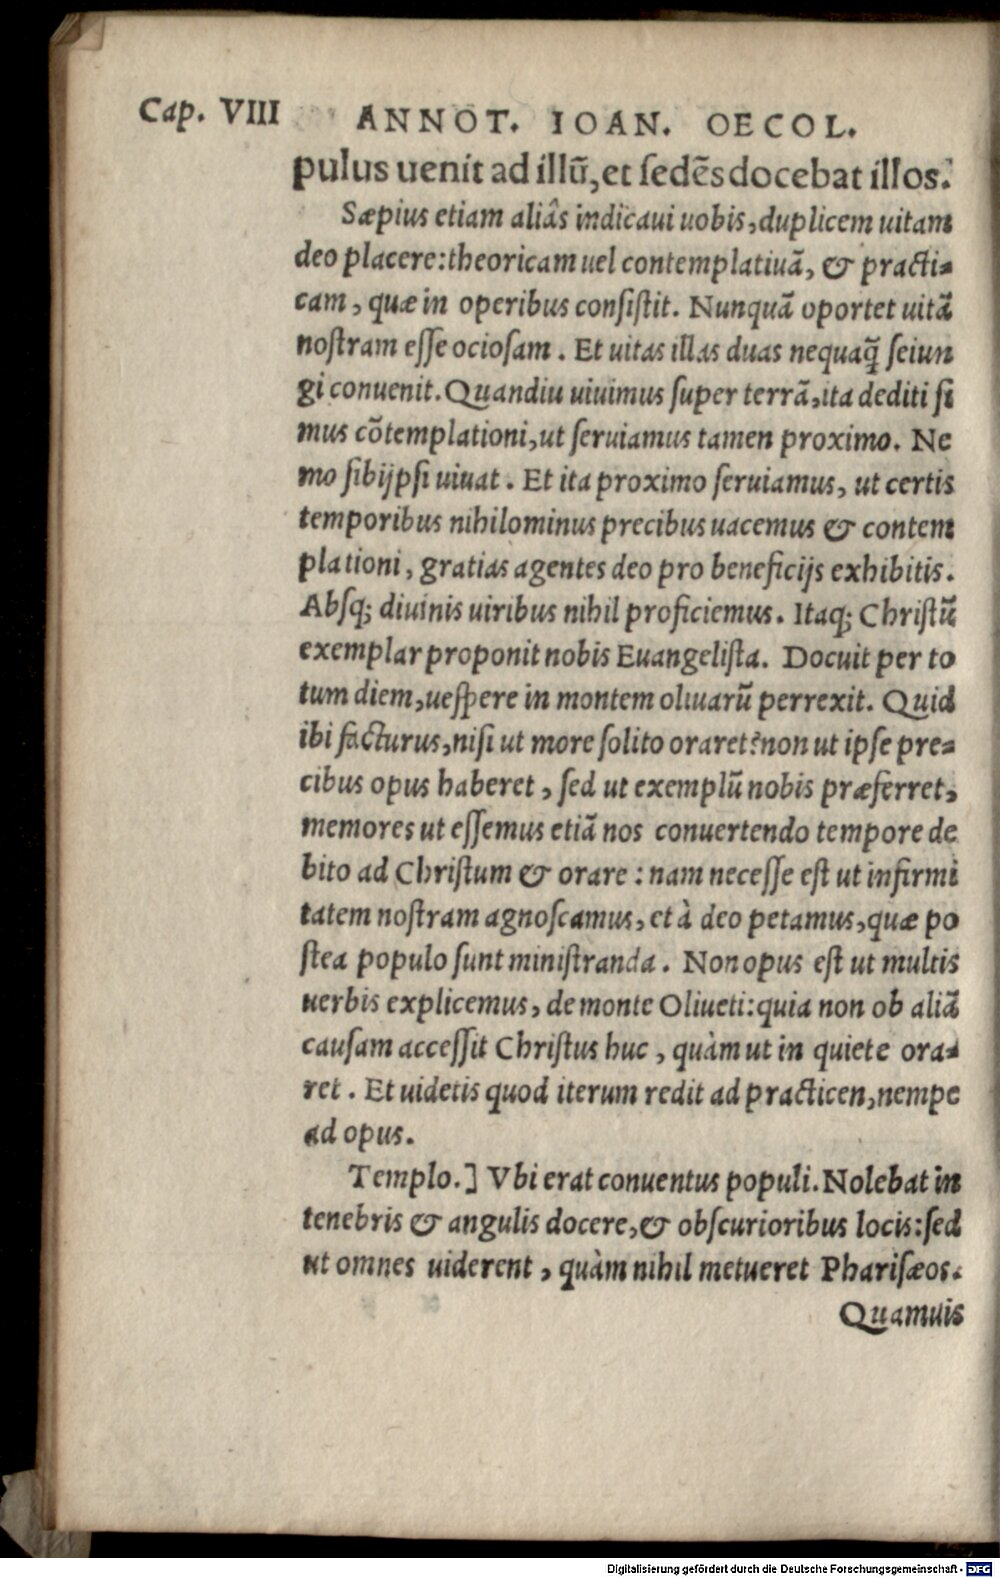 Cap. VIII ANNOT. IOAN. OECOL.
pulus uenit ad illū, et sedēs docebat illos.
Sæpius etiam aliâs indicaui uobis, duplicem uitam
deo placere: theoricam uel contemplatiuā, & practi-
cam, quæ in operibus consistit. Nunquā oportet uitā
nostram esse ociosam. Et uitas illas duas nequaq̄ seiun
gi conuenit. Quandiu uiuimus super terrā, ita dediti si
mus cōtemplationi, ut seruiamus tamen proximo. Ne
mo sibijpsi uiuat. Et ita proximo seruiamus, ut certis
temporibus nihilominus precibus uacemus & contem
plationi, gratias agentes deo pro beneficijs exhibitis.
Absq; diuinis uiribus nihil proficiemus. Itaq; Christū
exemplar proponit nobis Euangelista. Docuit per to
tum diem, uespere in montem oliuarū perrexit. Quid
ibi facturus, nisi ut more solito oraret? non ut ipse pre-
cibus opus haberet, sed ut exemplū nobis præferret,
memores ut essemus etiā nos conuertendo tempore de
bito ad Christum & orare: nam necesse est ut infirmi
tatem nostram agnoscamus, et à deo petamus, quæ po
stea populo sunt ministranda. Non opus est ut multis
uerbis explicemus, de monte Oliueti: quia non ob aliā
causam accessit Christus huc, quàm ut in quiete ora-
ret. Et uidetis quod iterum redit ad practicen, nempe
ad opus.
Templo.] Vbi erat conuentus populi. Nolebat in
tenebris & angulis docere, & obscurioribus locis: sed
ut omnes uiderent, quàm nihil metueret Pharisæos.
Quamuis
Digitalisierung gefördert durch die Deutsche Forschungsgemeinschaft - DFG